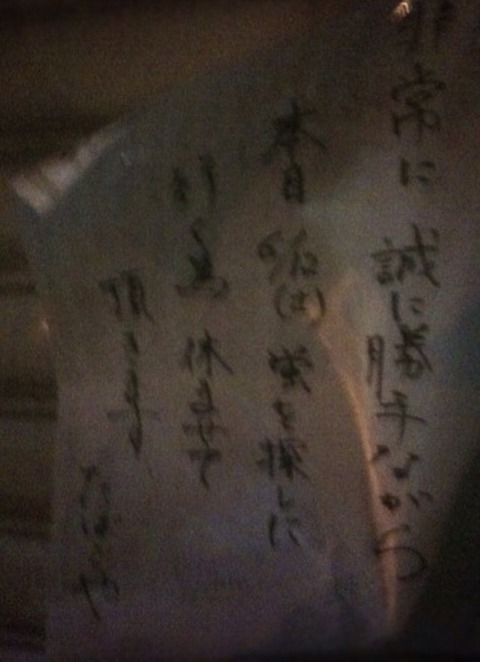 非常に 誠に勝手ながら
本日 (土) 蛍を探しに
行く為 休ませて
頂きます